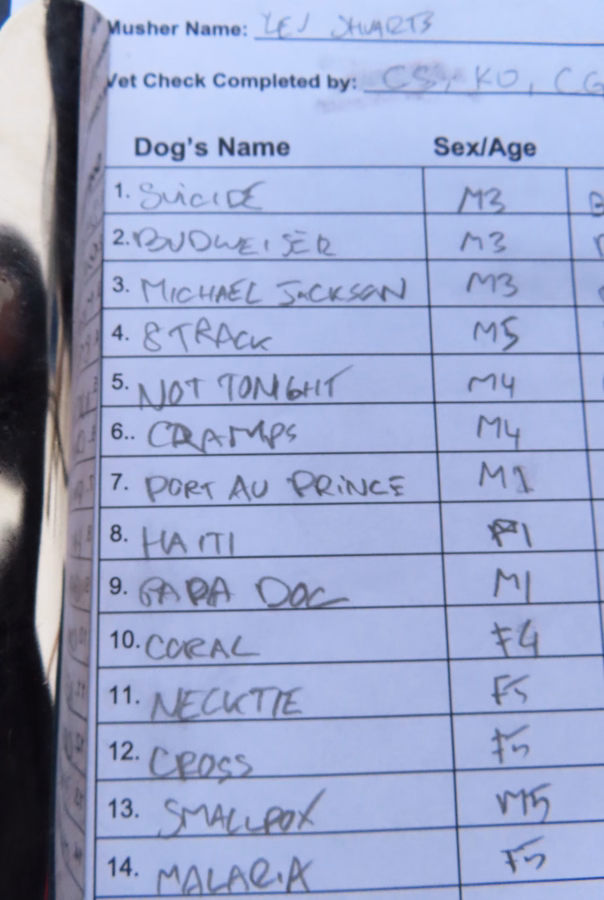 Musher Name: LEV SHVARTS
Vet Check Completed by: CS, KO, CG
Dog's Name Sex/Age
1. SUICIDE M3
2. BUDWEISER M3
3. MICHAEL JACKSON M3
4. 8 TRACK M5
5. NOT TONIGHT M4
6.. CRAMPS M4
7. PORT AU PRINCE M1
8. HAITI F1
9. PAPA DOC M1
10. CORAL F4
11. NECKTIE F5
12. CROSS F5
13. SMALLPOX M5
14. MALARIA F5